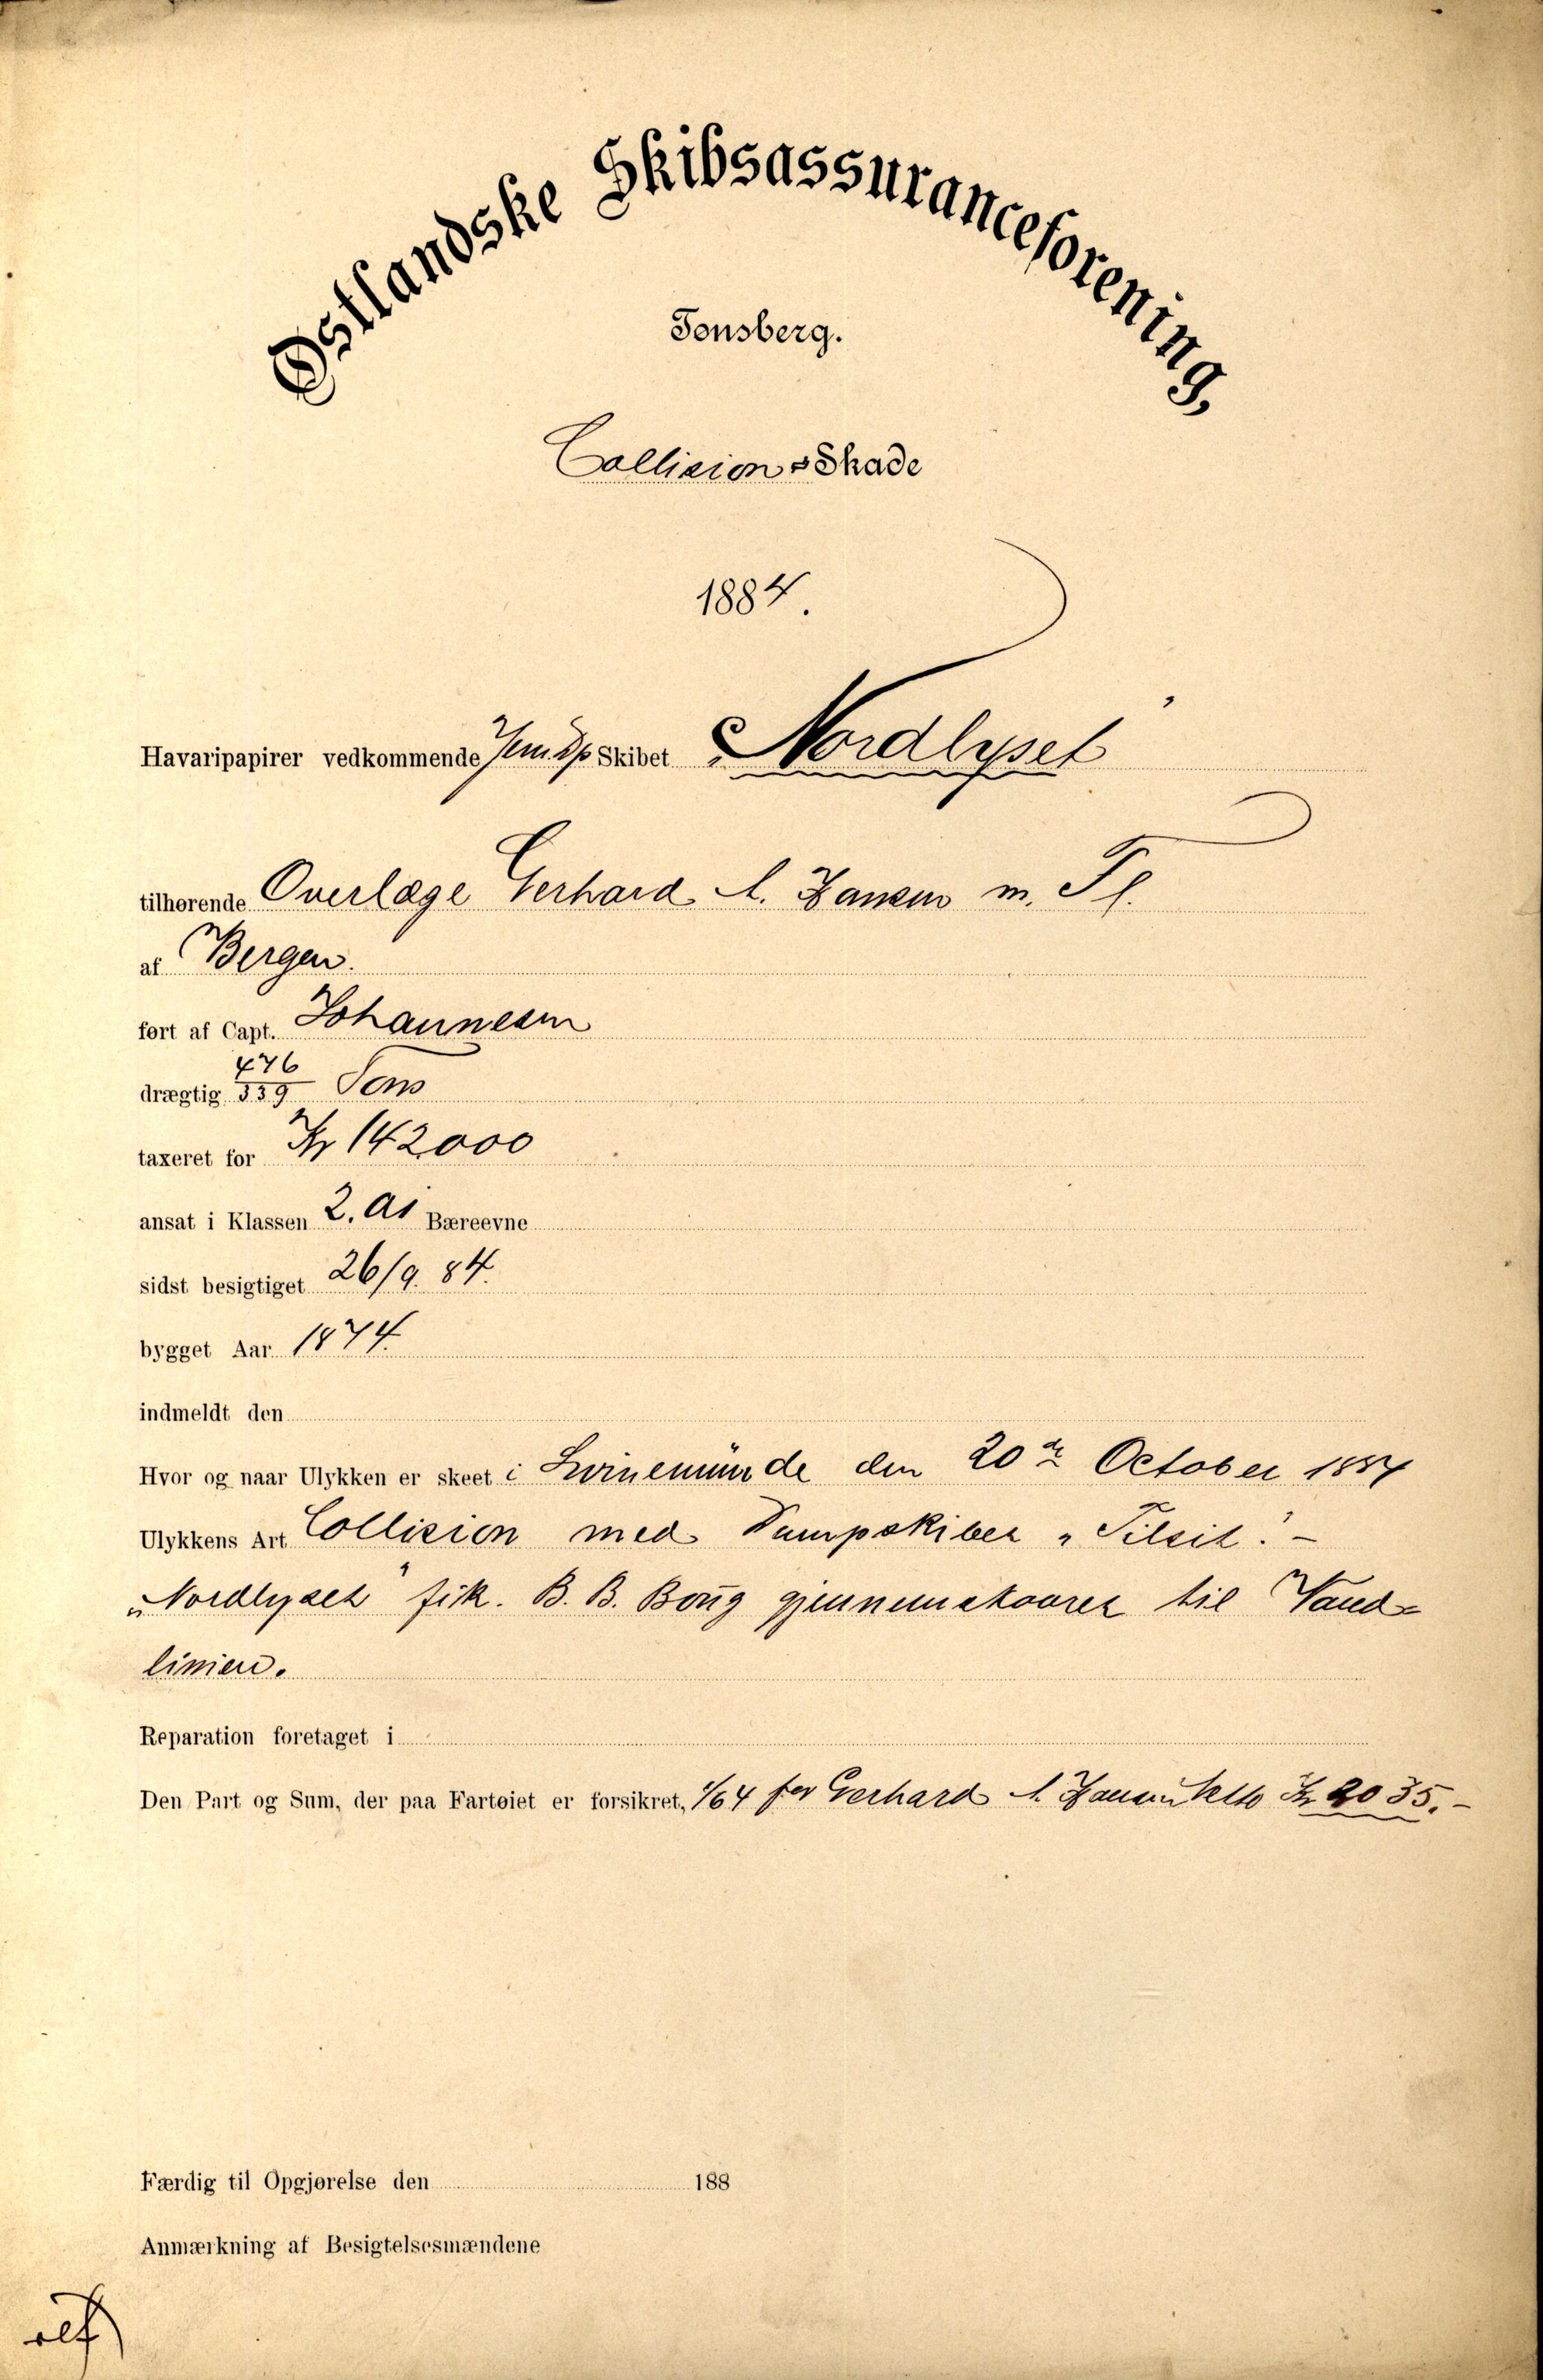 Østlandske Skibsassuranceforening,
Tønsberg.
Collision=Skade
1884.
Havaripapirer vedkommende Jern Dp Skibet „Nordlyset"
tilhørende Overlæge Gerhard A. Hansen m. Fl.
af Bergen.
ført af Capt. Johannesen
drægtig 476/339 Tons
taxeret for Kr 142000
ansat i Klassen 2. A1 Bæreevne
sidst besigtiget 26/9. 84.
bygget Aar 1874.
indmeldt den
Hvor og naar Ulykken er skeet i Swinemünde den 20de October 1884
Ulykkens Art Collision med Dampskibet „Tilsit". –
„Nordlyset" fik B. B. Boug gjennemskaaret til Vand=
linien.
Reparation foretaget i
Den Part og Sum, der paa Fartøiet er forsikret, 1/64 for Gerhard A. Hansen Netto Kr 2035. –
Færdig til Opgjørelse den 188
Anmærkning af Besigtelsesmændene